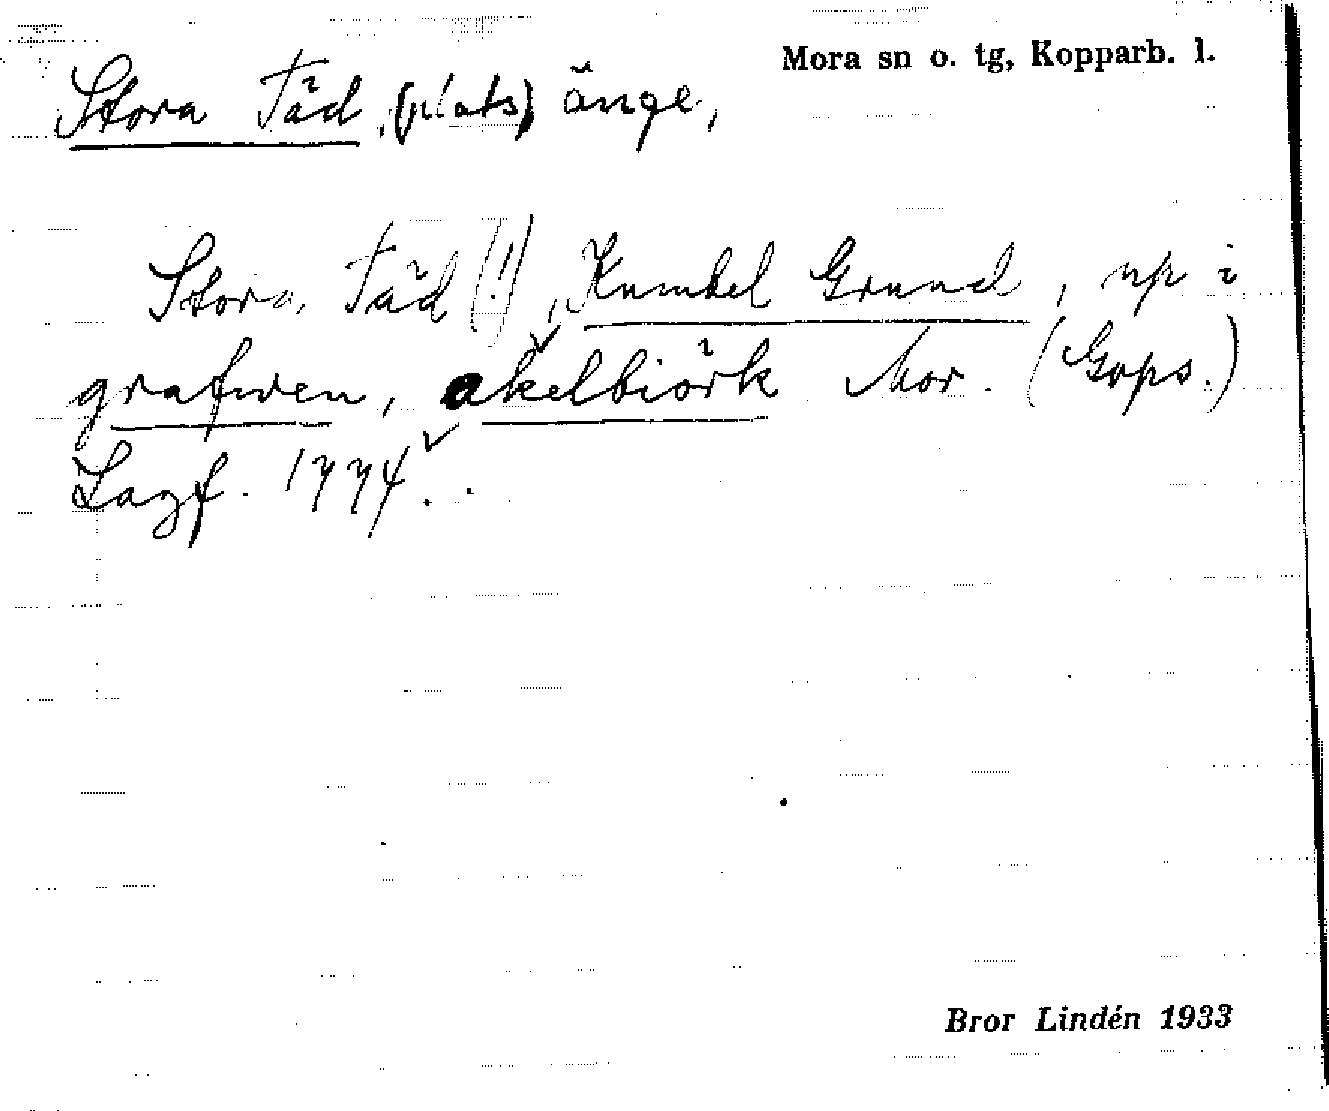 Mora sn o. tg, Kopparb. l.
Stora Täd, (plats) änge,
Stora Täd (!), Kumbel Grund, up i
grafwen, akelbiörk Mor. (Gops.)
Lagf. 1774.
Bror Lindén 1933